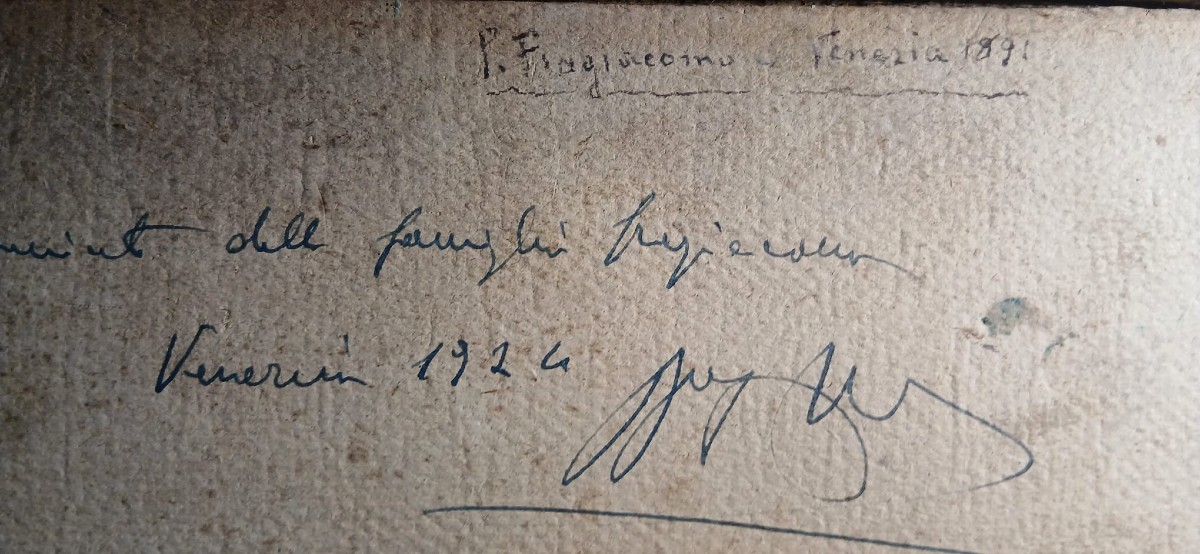 P. Fragiacomo Venezia 1891
della famiglia Fragiacomo
Venezia 1924